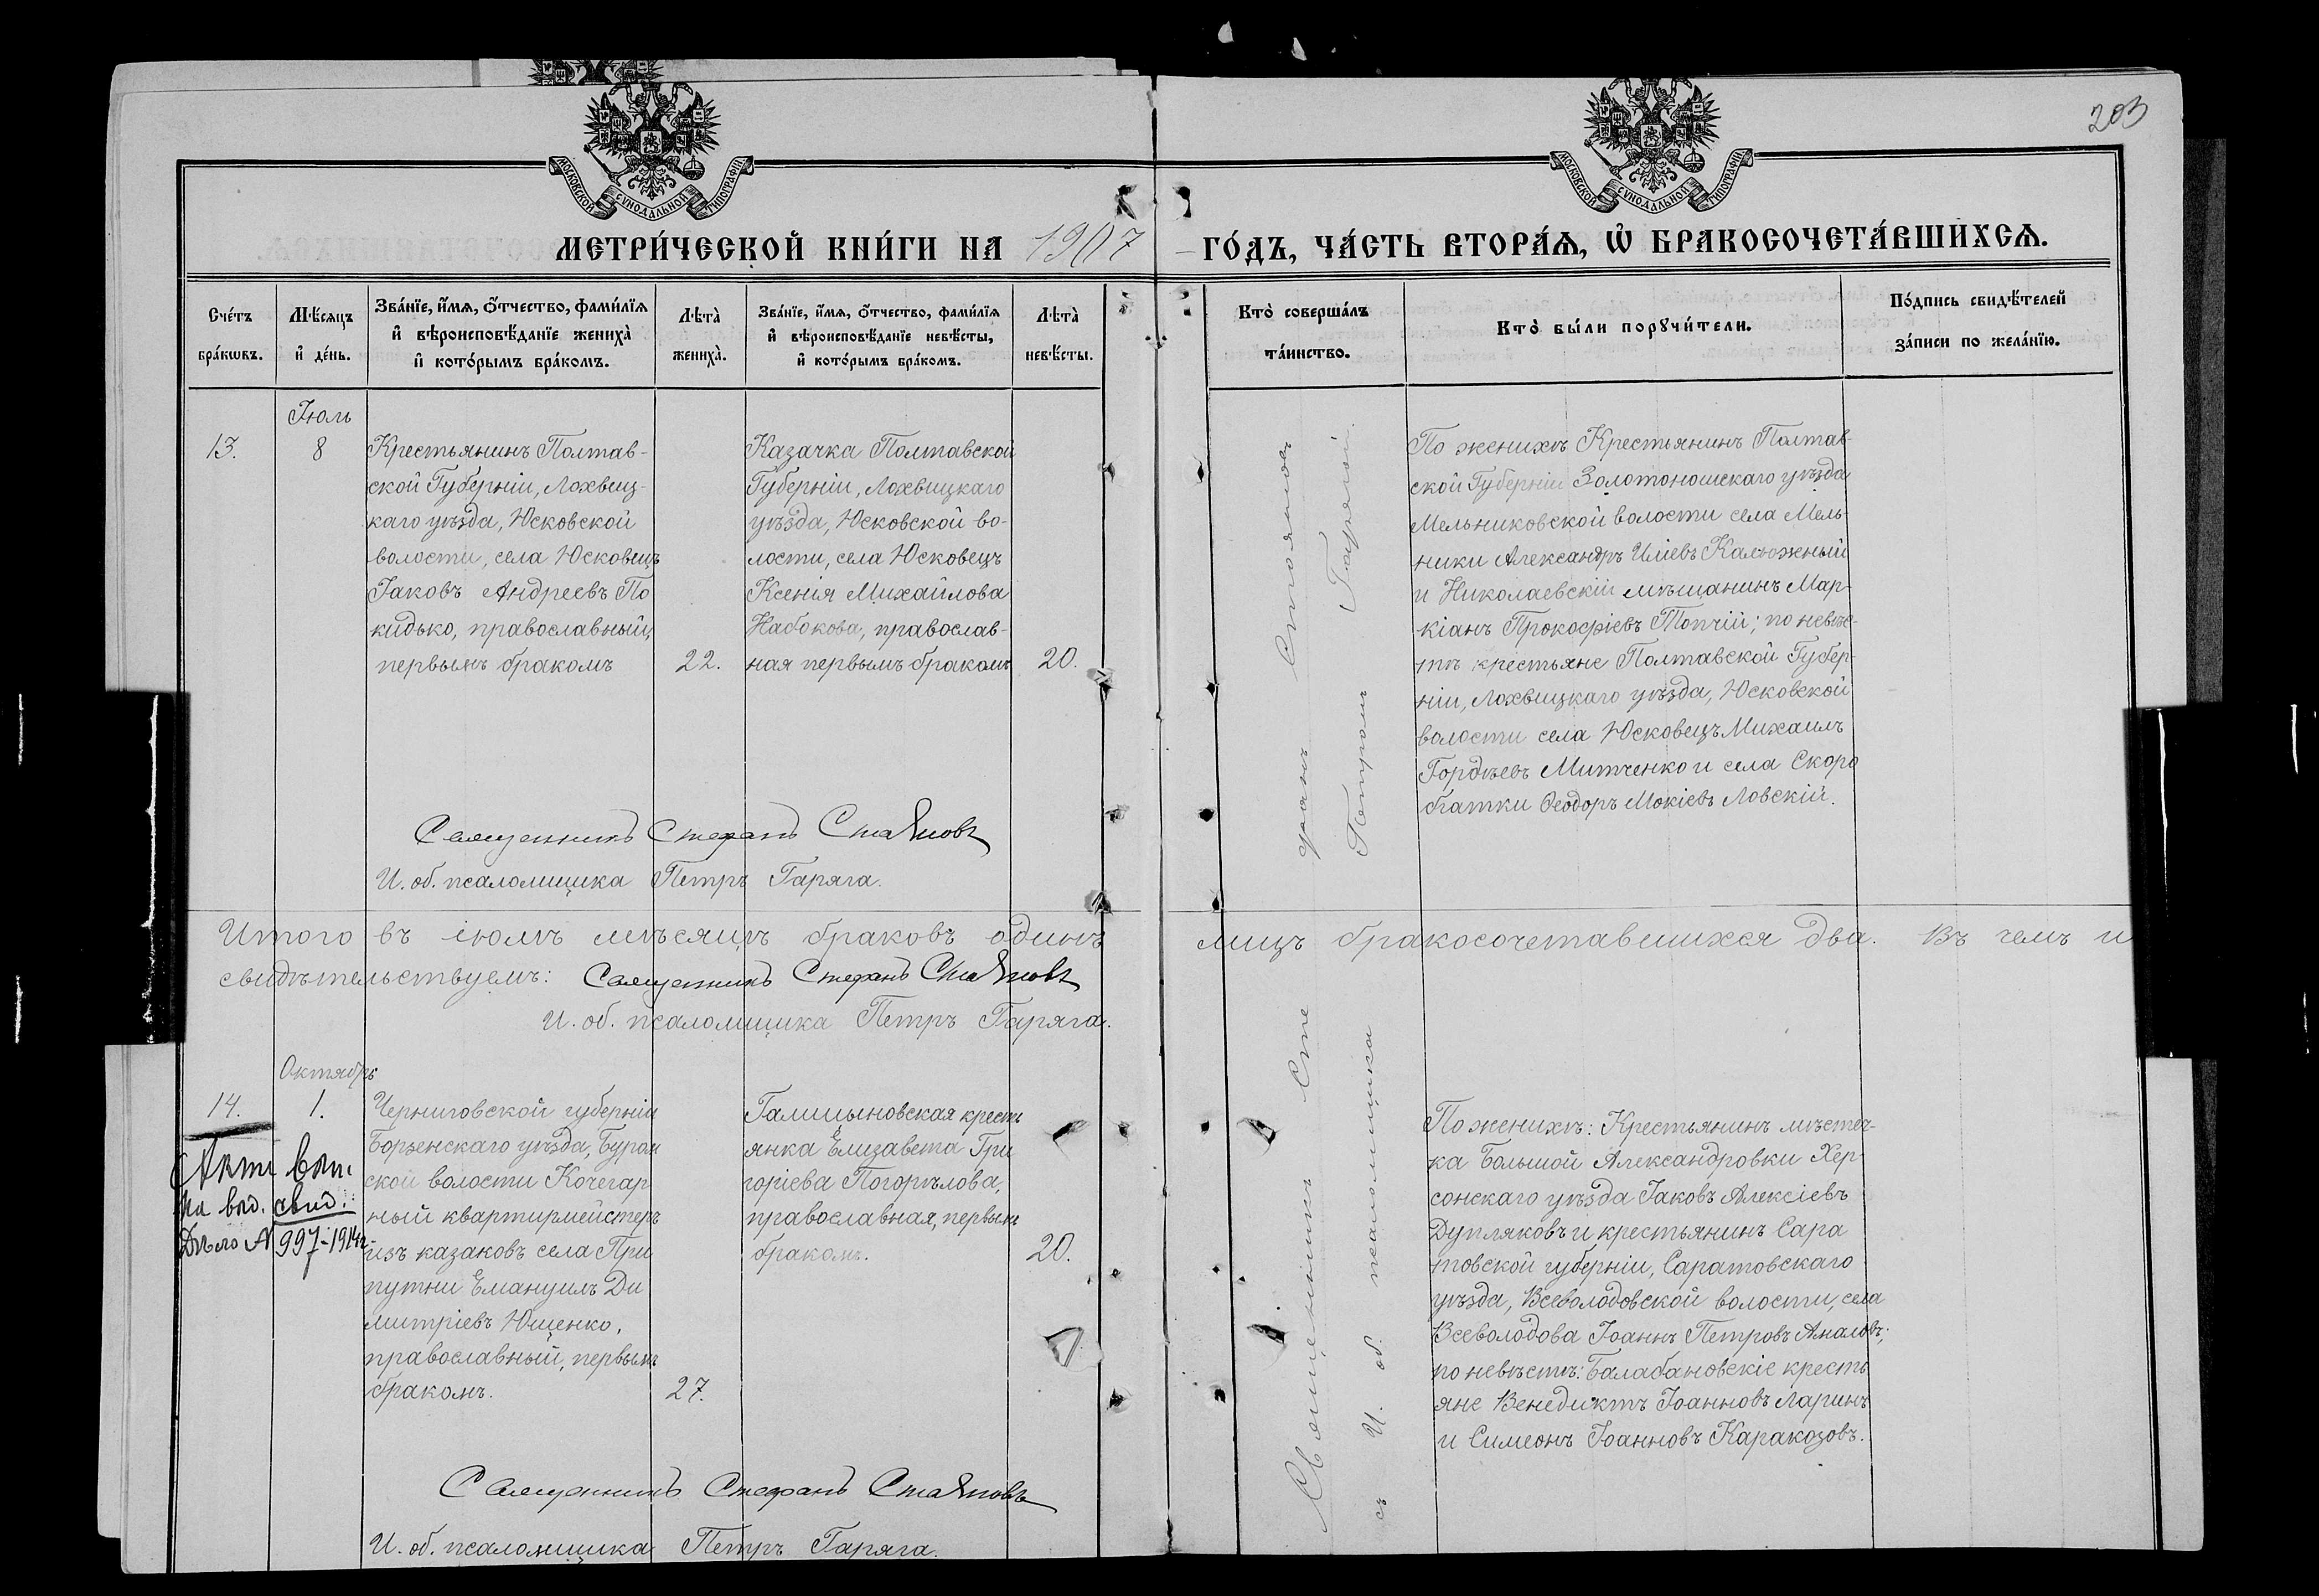 203
МОСКОВСКОЙ СѴНОДАЛЬНОЙ ТИПОГРАФІИ
МОСКОВСКОЙ СѴНОДАЛЬНОЙ ТИПОГРАФІИ
МЕТРИ́ЧЕСКОЙ КНИ́ГИ НА 1907 ГО́ДЪ, ЧА́СТЬ ВТОРА́Я, Ѿ БРАКОСОЧЕТА́ВШИХСЯ.
Сче́тъ
бра́кѡвъ.
Мѣ́сяцъ
и҆ де́нь.
Зва́нїе, и҆́мя, ѻ҆́тчество, фами́лїя
и҆ вѣроисповѣ́данїе жениха̀
и҆ кото́рымъ бра́комъ.
Лѣта̀
жениха̀.
Зва́нїе, и҆́мя, ѻ҆́тчество, фами́лїя
и҆ вѣроисповѣ́данїе невѣ́сты,
и҆ кото́рымъ бра́комъ.
Лѣта̀
невѣ́сты.
Кто̀ соверша́лъ
та́инство.
Кто̀ бы́ли порꙋчи́тели.
По́дпись свидѣ́телей
за́писи по жела́нїю.
Іюль
13.
8
Крестьянинъ Полтав-
ской Губерніи, Лохвиц-
каго уѣзда, Юсковской
волости, села Юсковецъ
Іаковъ Андреевъ По
кидько, православный,
первымъ бракомъ
22.
Казачка Полтавской
Губерніи, Лохвицкаго
уѣзда, Юсковской во-
лости, села Юсковецъ
Ксенія Михайлова
Набокова, православ-
ная первымъ бракомъ
20.
По женихѣ Крестьянинъ Полтав-
ской Губерніи Золотоношскаго уѣзда
Мельниковской волости села Мель-
ники Александръ Иліевъ Калюжный
и Николаевскій мѣщанинъ Мар-
кіанъ Прокофіевъ Топчій; по невѣс-
тѣ крестьяне Полтавской Губер-
ніи, Лохвицкаго уѣзда, Юсковской
волости села Юсковецъ Михаилъ
Гордѣевъ Митченко и села Скоро
батки Ѳеодоръ Мокіевъ Ловскій.
Священникъ Стефанъ Стояновъ
И. об. псаломщика Петръ Гаряга.
Итого въ іюлѣ мѣсяцѣ браковъ одинъ лицъ бракосочетавшихся два. Въ чемъ и
свидѣтельствуемъ: Священникъ Стефанъ Стояновъ
И. об. псаломщика Петръ Гаряга.
Священникъ Стефанъ Стояновъ
съ И. об. псаломщика Петромъ Гарягой.
Октябрь
14.
1.
на выд. свид.
Дѣло № 997-1914 г.
Черниговской губерніи
Борзенскаго уѣзда, Буром
ской волости Кочегар
ный квартирмейстеръ
изъ казаковъ села При
путни Емануилъ Ди
митріевъ Ющенко,
православный, первымъ
бракомъ.
27.
Галицыновская кресть
янка Елизавета Гри
горіева Погорѣлова,
православная, первымъ
бракомъ.
20.
По женихѣ: Крестьянинъ мѣстеч-
ка Большой Александровки Хер-
сонскаго уѣзда Іаковъ Алексіевъ
Дупляковъ и крестьянинъ Сара
товской губерніи, Саратовскаго
уѣзда, Всеволодовской волости, села
Всеволодова Іоаннъ Петровъ Амаловъ;
по невѣстѣ: Балабановскіе кресть
яне Венедиктъ Іоанновъ Ларинъ
и Симеонъ Іоанновъ Каракозовъ.
Священникъ Стефанъ Стояновъ
И. об. псаломщика Петръ Гаряга.